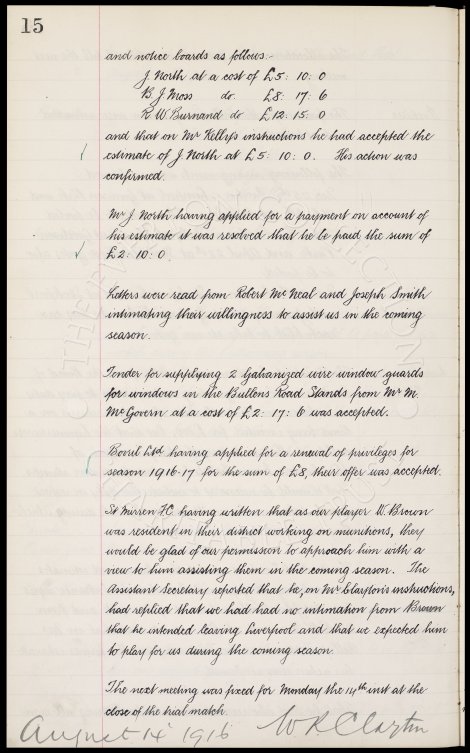 15
and notice boards as follows:-
J. North at a cost of £5: 10: 0
B. J. Moss do. £8: 17: 6
R. W. Burnand do £12. 15: 0
and that on Mr Kelly's instructions he had accepted the
estimate of J. North at £5: 10: 0. His action was
confirmed.
Mr J. North having applied for a payment on account of
his estimate it was resolved that he be paid the sum of
£2: 10: 0
Letters were read from Robert McNeal and Joseph Smith
intimating their willingness to assist us in the coming
season.
Tender for supplying 2 Galvanized wire window guards
for windows in the Bullens Road Stands from Mr M.
McGovern at a cost of £2: 17: 6 was accepted.
Bovril Ltd having applied for a renewal of privileges for
season 1916-17 for the sum of £8, their offer was accepted.
St Mirren F.C. having written that as our player W. Brown
was resident in their district working on munitions, they
would be glad of our permission to approach him with a
view to him assisting them in the coming season. The
Assistant Secretary reported that he, on Mr Clayton's instructions,
had replied that we had had no intimation from Brown
that he intended leaving Liverpool and that we expected him
to play for us during the coming season.
The next meeting was fixed for Monday the 14th inst at the
close of the trial match.
August 14 1916 W R Clayton